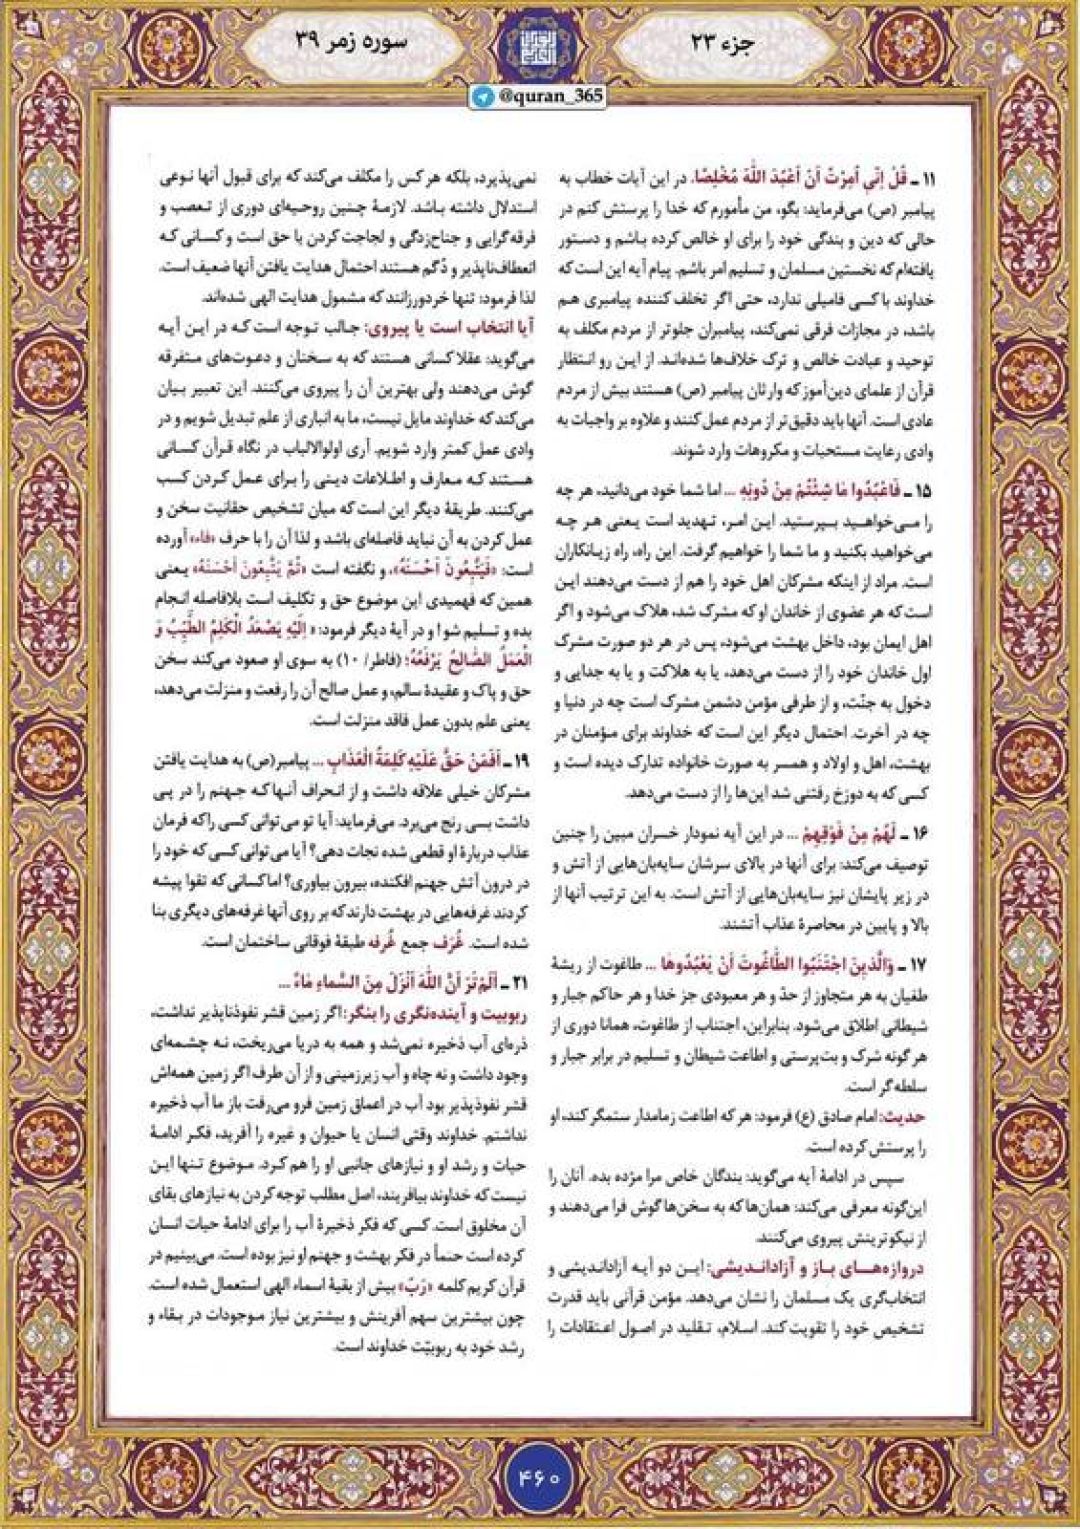 جزء ۲۳
سوره زمر ۳۹
@quran_365
۱۱ ـ قُلْ اِنّی اُمِرْتُ اَنْ اَعْبُدَ اللّٰهَ مُخْلِصًا. در این آیات خطاب به
پیامبر (ص) می‌فرماید: بگو، من مأمورم که خدا را پرستش کنم در
حالی که دین و بندگی خود را برای او خالص کرده باشم و دستور
یافته‌ام که نخستین مسلمان و تسلیم امر باشم. پیام آیه این است که
خداوند با کسی فامیلی ندارد، حتی اگر تخلف کننده پیامبری هم
باشد، در مجازات فرقی نمی‌کند، پیامبران جلوتر از مردم مکلف به
توحید و عبادت خالص و ترک خلاف‌ها شده‌اند. از این رو انتظار
قرآن از علمای دین‌آموز که وارثان پیامبر (ص) هستند بیش از مردم
عادی است. آنها باید دقیق‌تر از مردم عمل کنند و علاوه بر واجبات به
وادی رعایت مستحبات و مکروهات وارد شوند.
۱۵ ـ فَاعْبُدُوا مٰا شِئْتُمْ مِنْ دُونِهِ ... اما شما خود می‌دانید، هر چه
را می‌خواهید بپرستید. این امر، تهدید است یعنی هر چه
می‌خواهید بکنید و ما شما را خواهیم گرفت. این راه، راه زیانکاران
است. مراد از اینکه مشرکان اهل خود را هم از دست می‌دهند این
است که هر عضوی از خاندان او که مشرک شد، هلاک می‌شود و اگر
اهل ایمان بود، داخل بهشت می‌شود، پس در هر دو صورت مشرک
اول خاندان خود را از دست می‌دهد، یا به هلاکت و یا به جدایی و
دخول به جنّت، و از طرفی مؤمن دشمن مشرک است چه در دنیا و
چه در آخرت. احتمال دیگر این است که خداوند برای مؤمنان در
بهشت، اهل و اولاد و همسر به صورت خانواده تدارک دیده است و
کسی که به دوزخ رفتنی شد این‌ها را از دست می‌دهد.
۱۶ ـ لَهُمْ مِنْ فَوْقِهِمْ ... در این آیه نمودار خسران مبین را چنین
توصیف می‌کند: برای آنها در بالای سرشان سایه‌بان‌هایی از آتش و
در زیر پایشان نیز سایه‌بان‌هایی از آتش است. به این ترتیب آنها از
بالا و پایین در محاصرهٔ عذاب آتشند.
۱۷ ـ وَالَّذینَ اجْتَنَبُوا الطّاغُوتَ اَنْ یَعْبُدُوها ... طاغوت از ریشهٔ
طغیان به هر متجاوز از حدّ و هر معبودی جز خدا و هر حاکم جبار و
شیطانی اطلاق می‌شود. بنابراین، اجتناب از طاغوت، همانا دوری از
هر گونه شرک و بت‌پرستی و اطاعت شیطان و تسلیم در برابر جبار و
سلطه‌گر است.
حدیث: امام صادق (ع) فرمود: هر که اطاعت زمامدار ستمگر کند، او
را پرستش کرده است.
سپس در ادامهٔ آیه می‌گوید: بندگان خاص مرا مژده بده. آنان را
این‌گونه معرفی می‌کند: همان‌ها که به سخن‌ها گوش فرا می‌دهند و
از نیکوترینش پیروی می‌کنند.
دروازه‌های باز و آزاداندیشی: این دو آیه آزاداندیشی و
انتخاب‌گری یک مسلمان را نشان می‌دهد. مؤمن قرآنی باید قدرت
تشخیص خود را تقویت کند. اسلام، تقلید در اصول اعتقادات را
نمی‌پذیرد، بلکه هر کس را مکلف می‌کند که برای قبول آنها نوعی
استدلال داشته باشد. لازمهٔ چنین روحیه‌ای دوری از تعصب و
فرقه‌گرایی و جناح‌زدگی و لجاجت کردن با حق است و کسانی که
انعطاف‌ناپذیر و دُگم هستند احتمال هدایت یافتن آنها ضعیف است.
لذا فرمود: تنها خردورزانند که مشمول هدایت الهی شده‌اند.
آیا انتخاب است یا پیروی: جالب توجه است که در این آیه
می‌گوید: عقلا کسانی هستند که به سخنان و دعوت‌های متفرقه
گوش می‌دهند ولی بهترین آن را پیروی می‌کنند. این تعبیر بیان
می‌کند که خداوند مایل نیست، ما به انباری از علم تبدیل شویم و در
وادی عمل کمتر وارد شویم. آری اولوالالباب در نگاه قرآن کسانی
هستند که معارف و اطلاعات دینی را برای عمل کردن کسب
می‌کنند. طریقهٔ دیگر این است که میان تشخیص حقانیت سخن و
عمل کردن به آن نباید فاصله‌ای باشد و لذا آن را با حرف «فاء» آورده
است: «فَیَتَّبِعُونَ اَحْسَنَهُ»، و نگفته است «ثُمَّ یَتَّبِعُونَ اَحْسَنَهُ» یعنی
همین که فهمیدی این موضوع حق و تکلیف است بلافاصله انجام
بده و تسلیم شو! و در آیهٔ دیگر فرمود: « اِلَیْهِ یَصْعَدُ الْکَلِمُ الطَّیِّبُ وَ
الْعَمَلُ الصّالِحُ یَرْفَعُهُ؛ (فاطر/ ۱۰) به سوی او صعود می‌کند سخن
حق و پاک و عقیدهٔ سالم، و عمل صالح آن را رفعت و منزلت می‌دهد،
یعنی علم بدون عمل فاقد منزلت است.
۱۹ ـ اَفَمَنْ حَقَّ عَلَیْهِ کَلِمَةُ الْعَذابِ ... پیامبر(ص) به هدایت یافتن
مشرکان خیلی علاقه داشت و از انحراف آنها که جهنم را در پی
داشت بسی رنج می‌برد. می‌فرماید: آیا تو می‌توانی کسی را که فرمان
عذاب دربارهٔ او قطعی شده نجات دهی؟ آیا می‌توانی کسی که خود را
در درون آتش جهنم افکنده، بیرون بیاوری؟ اما کسانی که تقوا پیشه
کردند غرفه‌هایی در بهشت دارند که بر روی آنها غرفه‌های دیگری بنا
شده است. غُرَف جمع غُرفه طبقهٔ فوقانی ساختمان است.
۲۱ ـ اَلَمْ تَرَ اَنَّ اللّٰهَ اَنْزَلَ مِنَ السَّماءِ مٰاءً ...
ربوبیت و آینده‌نگری را بنگر: اگر زمین قشر نفوذناپذیر نداشت،
ذره‌ای آب ذخیره نمی‌شد و همه به دریا می‌ریخت، نه چشمه‌ای
وجود داشت و نه چاه و آب زیرزمینی و از آن طرف اگر زمین همه‌اش
قشر نفوذپذیر بود آب در اعماق زمین فرو می‌رفت باز ما آب ذخیره
نداشتم. خداوند وقتی انسان یا حیوان و غیره را آفرید، فکر ادامهٔ
حیات و رشد او و نیازهای جانبی او را هم کرد. موضوع تنها این
نیست که خداوند بیافریند، اصل مطلب توجه کردن به نیازهای بقای
آن مخلوق است. کسی که فکر ذخیرهٔ آب را برای ادامهٔ حیات انسان
کرده است حتماً در فکر بهشت و جهنم او نیز بوده است. می‌بینیم در
قرآن کریم کلمه «رَبّ» بیش از بقیهٔ اسماء الهی استعمال شده است.
چون بیشترین سهم آفرینش و بیشترین نیاز موجودات در بقاء و
رشد خود به ربوبیّت خداوند است.
۴۶۰